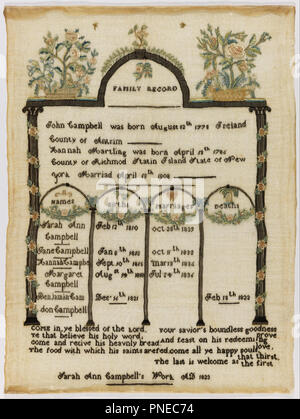 FAMILY RECORD
John Campbell was born August 12th 1778 Ireland
County of Antrim
Hannah Hartling was born April 11th 1786
County of Richmod Statin Island State of New
York Married April 12th 1808
Names Births Marriages Deaths
Sarah Ann Feb 12th 1810 Oct 28th 1829
Campbell
Jane Campbell Jan 9th 1812 Oct 8th 1832
Hannah Campbell Sept 10th 1815 Mar 13th 1834
Margaret Aug 29th 1818 Jul 24th 1834
Campbell
Benjamin Cam Dec 30th 1821 Feb 18th 1822
don Campbell
Come in, ye blessed of the Lord, your savior's boundless goodness
ye that believe his holy word, prove,
come and recive his heavenly bread And feast on his redeeming love,
The food with which his saints are fed. come all ye happy souls that thirst,
The last is welcome as the first
Sarah Ann Campbell's Work AD 1822
alamy
Image ID: PNEC74
www.alamy.com